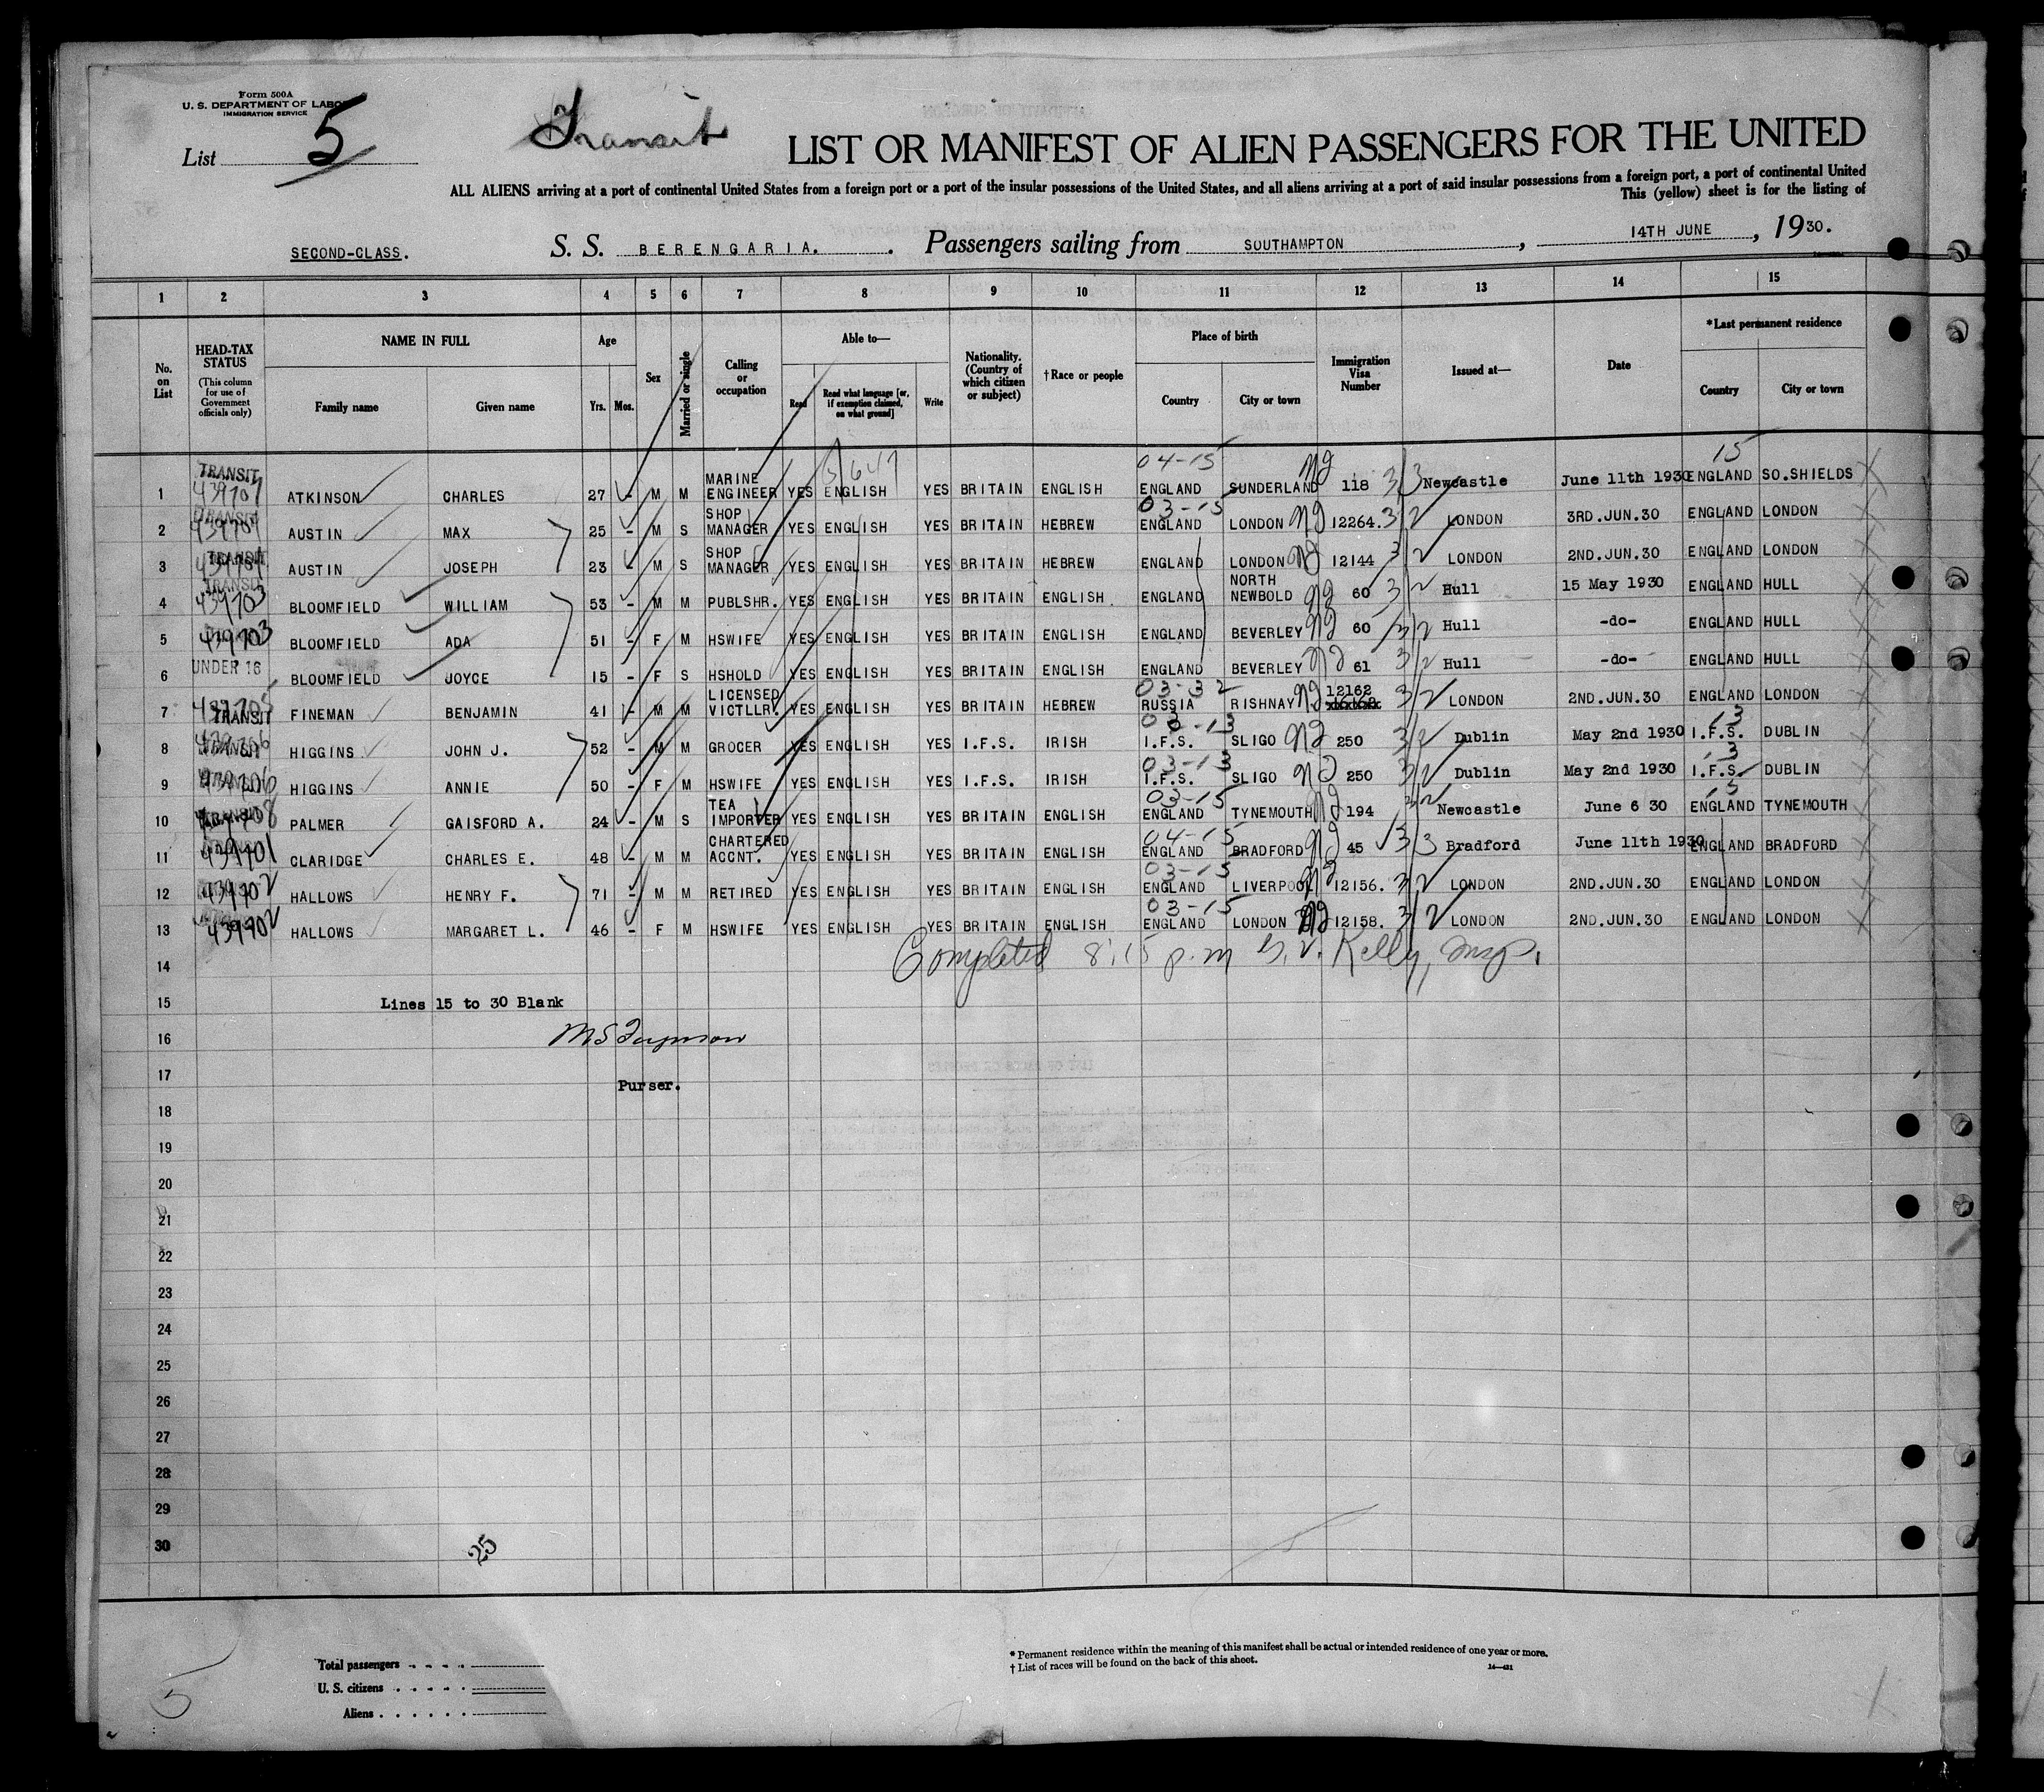 Form 500A
U. S. DEPARTMENT OF LABOR
IMMIGRATION SERVICE
List 5
Transit
LIST OR MANIFEST OF ALIEN PASSENGERS FOR THE UNITED
ALL ALIENS arriving at a port of continental United States from a foreign port or a port of the insular possessions of the United States, and all aliens arriving at a port of said insular possessions from a foreign port, a port of continental United
This (yellow) sheet is for the listing of
SECOND-CLASS. S. S. BERENGARIA. Passengers sailing from SOUTHAMPTON, 14TH JUNE, 1930.
1 2 3 4 5 6 7 8 9 10 11 12 13 14 15
No. on List
HEAD-TAX STATUS
(This column for use of Government officials only)
NAME IN FULL
Family name
Given name
Age
Yrs.
Mos.
Sex
Married or single
Calling or occupation
Able to—
Read
Read what language [or, if exemption claimed, on what ground]
Write
Nationality. (Country of which citizen or subject)
†Race or people
Place of birth
Country
City or town
Immigration Visa Number
Issued at—
Date
*Last permanent residence
Country
City or town
04-15 15
1 TRANSIT 439701 ATKINSON CHARLES 27 - M M MARINE ENGINEER YES ENGLISH YES BRITAIN ENGLISH ENGLAND SUNDERLAND 118 3 3 Newcastle June 11th 1930 ENGLAND SO.SHIELDS
03-15
2 AUSTIN MAX 25 - M S SHOP MANAGER YES ENGLISH YES BRITAIN HEBREW ENGLAND LONDON 12264. 3 2 LONDON 3RD.JUN.30 ENGLAND LONDON
3 TRANSIT AUSTIN JOSEPH 23 - M S SHOP MANAGER YES ENGLISH YES BRITAIN HEBREW ENGLAND LONDON 12144 3 2 LONDON 2ND.JUN.30 ENGLAND LONDON
4 TRANSIT 439703 BLOOMFIELD WILLIAM 53 - M M PUBLSHR. YES ENGLISH YES BRITAIN ENGLISH ENGLAND NORTH NEWBOLD 60 3 2 Hull 15 May 1930 ENGLAND HULL
5 439703 BLOOMFIELD ADA 51 - F M HSWIFE YES ENGLISH YES BRITAIN ENGLISH ENGLAND BEVERLEY 60 3 2 Hull -do- ENGLAND HULL
6 UNDER 16 BLOOMFIELD JOYCE 15 - F S HSHOLD YES ENGLISH YES BRITAIN ENGLISH ENGLAND BEVERLEY 61 3 2 Hull -do- ENGLAND HULL
03-32
7 439705 TRANSIT FINEMAN BENJAMIN 41 - M M LICENSED VICTLLR. YES ENGLISH YES BRITAIN HEBREW RUSSIA RISHNAY 12162 3 2 LONDON 2ND.JUN.30 ENGLAND LONDON
03-13 13
8 439706 HIGGINS JOHN J. 52 - M M GROCER YES ENGLISH YES I.F.S. IRISH I.F.S. SLIGO 250 3 2 Dublin May 2nd 1930 I.F.S. DUBLIN
03-13 13
9 439706 HIGGINS ANNIE 50 - F M HSWIFE YES ENGLISH YES I.F.S. IRISH I.F.S. SLIGO 250 3 2 Dublin May 2nd 1930 I.F.S. DUBLIN
03-15 15
10 PALMER GAISFORD A. 24 - M S TEA IMPORTER YES ENGLISH YES BRITAIN ENGLISH ENGLAND TYNEMOUTH 194 3 2 Newcastle June 6 30 ENGLAND TYNEMOUTH
04-15
11 439701 CLARIDGE CHARLES E. 48 - M M CHARTERED ACCNT. YES ENGLISH YES BRITAIN ENGLISH ENGLAND BRADFORD 45 3 3 Bradford June 11th 1930 ENGLAND BRADFORD
03-15
12 439702 HALLOWS HENRY F. 71 - M M RETIRED YES ENGLISH YES BRITAIN ENGLISH ENGLAND LIVERPOOL 12156. 3 2 LONDON 2ND.JUN.30 ENGLAND LONDON
03-15
13 439702 HALLOWS MARGARET L. 46 - F M HSWIFE YES ENGLISH YES BRITAIN ENGLISH ENGLAND LONDON 12158. 3 2 LONDON 2ND.JUN.30 ENGLAND LONDON
14 Completed 8:15 p.m Kelly, Insp.
15 Lines 15 to 30 Blank
16
17 Purser.
18
19
20
21
22
23
24
25
26
27
28
29
30
25
Total passengers
U. S. citizens
Aliens
5
* Permanent residence within the meaning of this manifest shall be actual or intended residence of one year or more.
† List of races will be found on the back of this sheet.
14—421